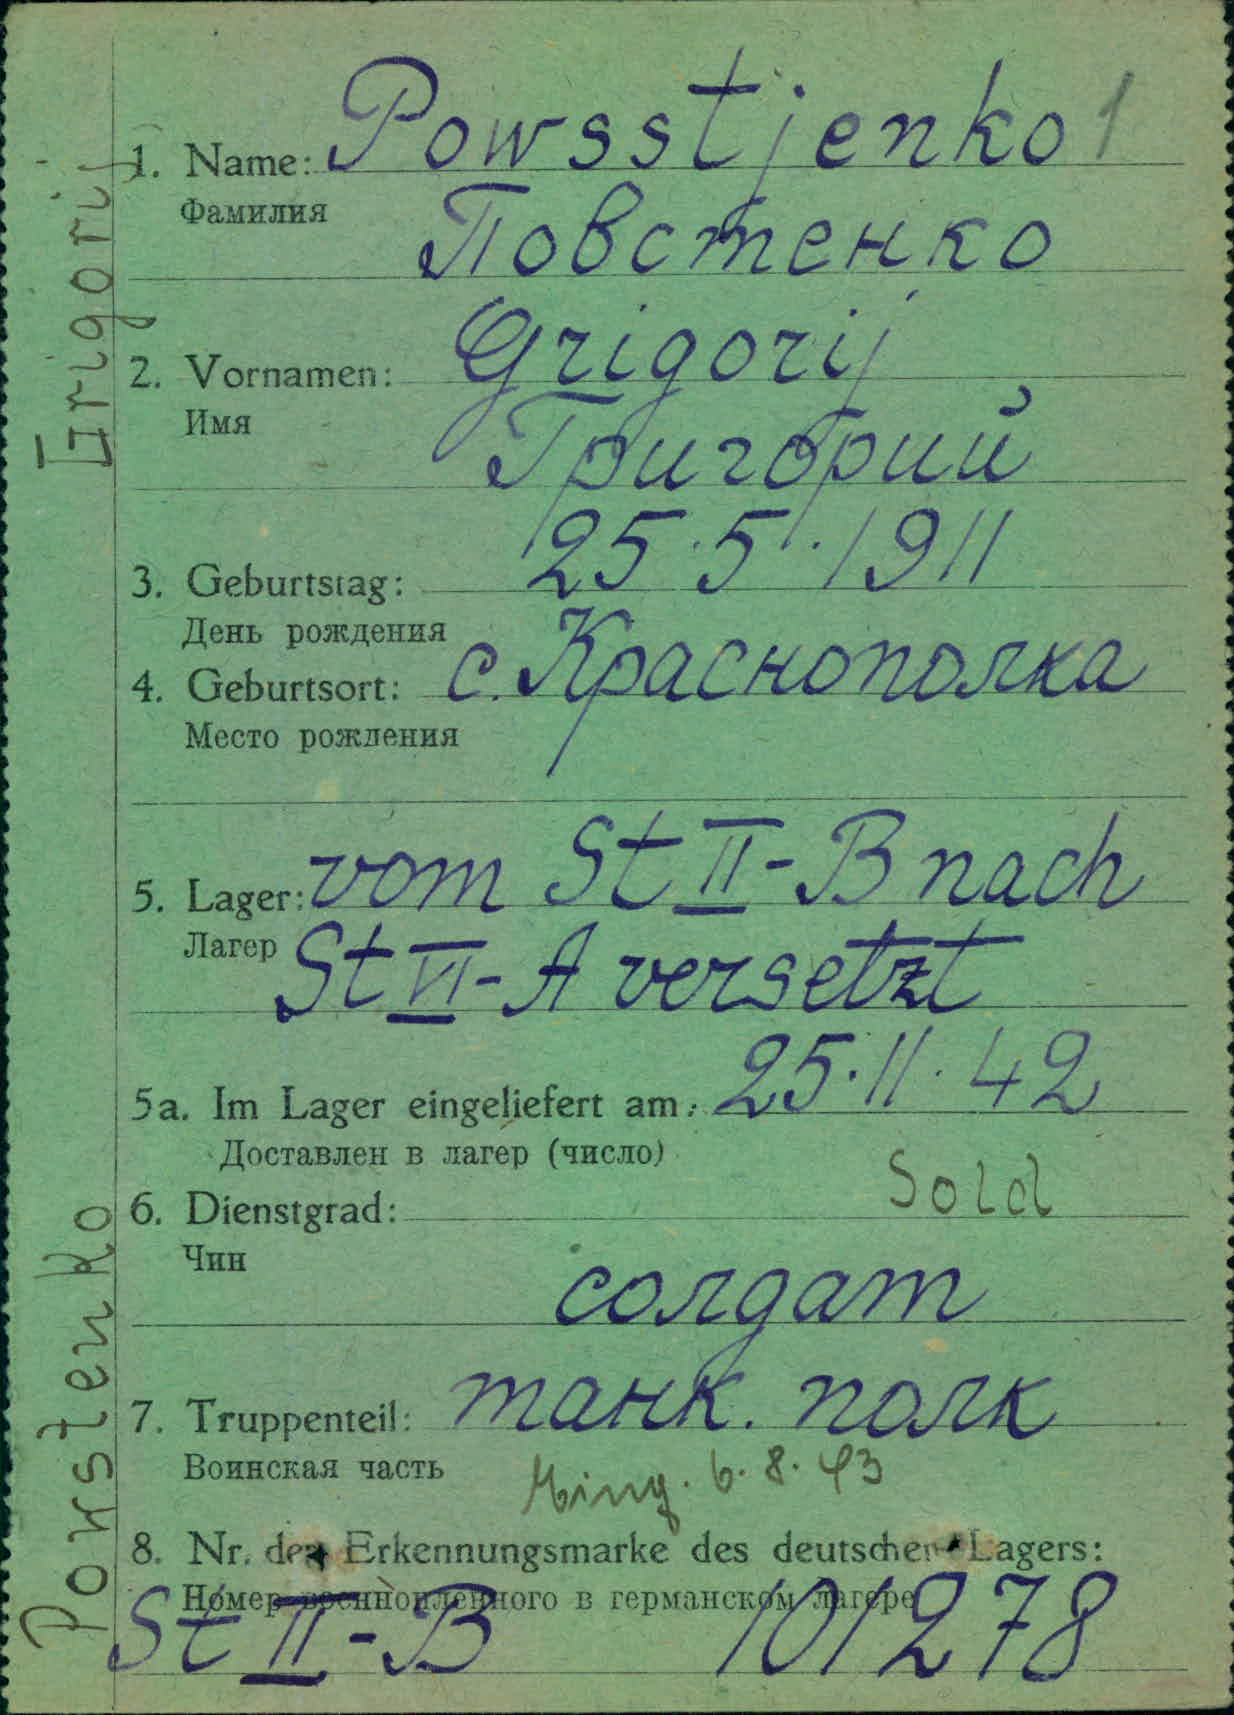 1. Name: Powsstjenko 1
Фамилия
Повстенко
2. Vornamen: Grigorij
Имя
Григорий
3. Geburtstag: 25.5.1911
День рождения
4. Geburtsort: с. Краснополка
Место рождения
5. Lager: vom St II-B nach
Лагер St VI-A versetzt
5a. Im Lager eingeliefert am: 25.11.42
Доставлен в лагер (число)
6. Dienstgrad: Sold
Чин
солдат
7. Truppenteil: танк. полк
Воинская часть
6.8.43
8. Nr. der Erkennungsmarke des deutschen Lagers:
Номер военнопленного в германском лагере
St II-B 101278
Powstenko Grigorij